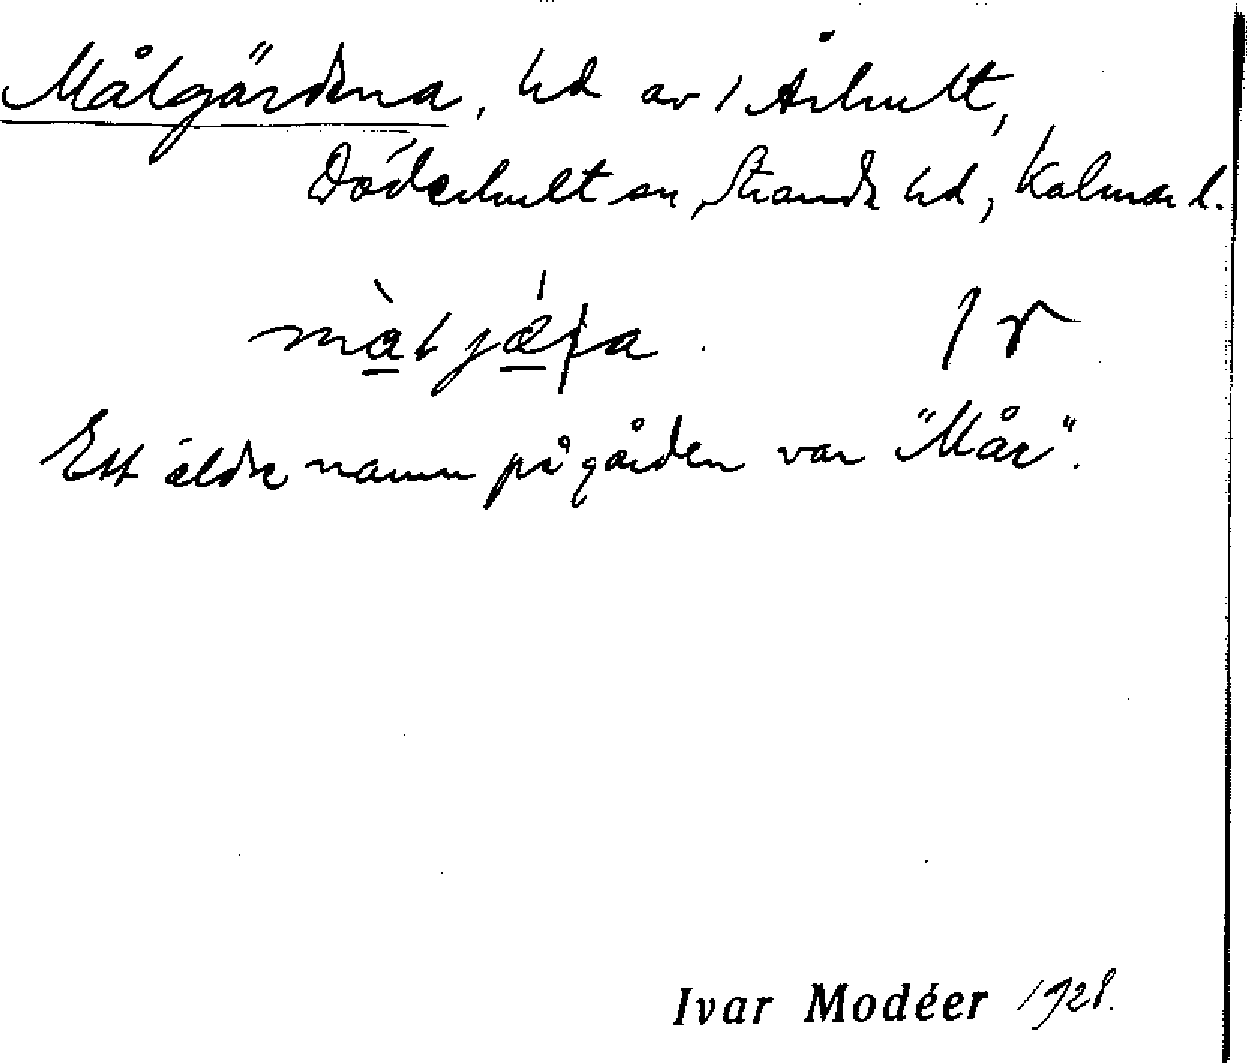 Målgärdena, hd av 1 Århult,
Döderhult sn, Stranda hd, Kalmar l.
Ett äldre namn på gården var "Mår".
Ivar Modéer 1928.